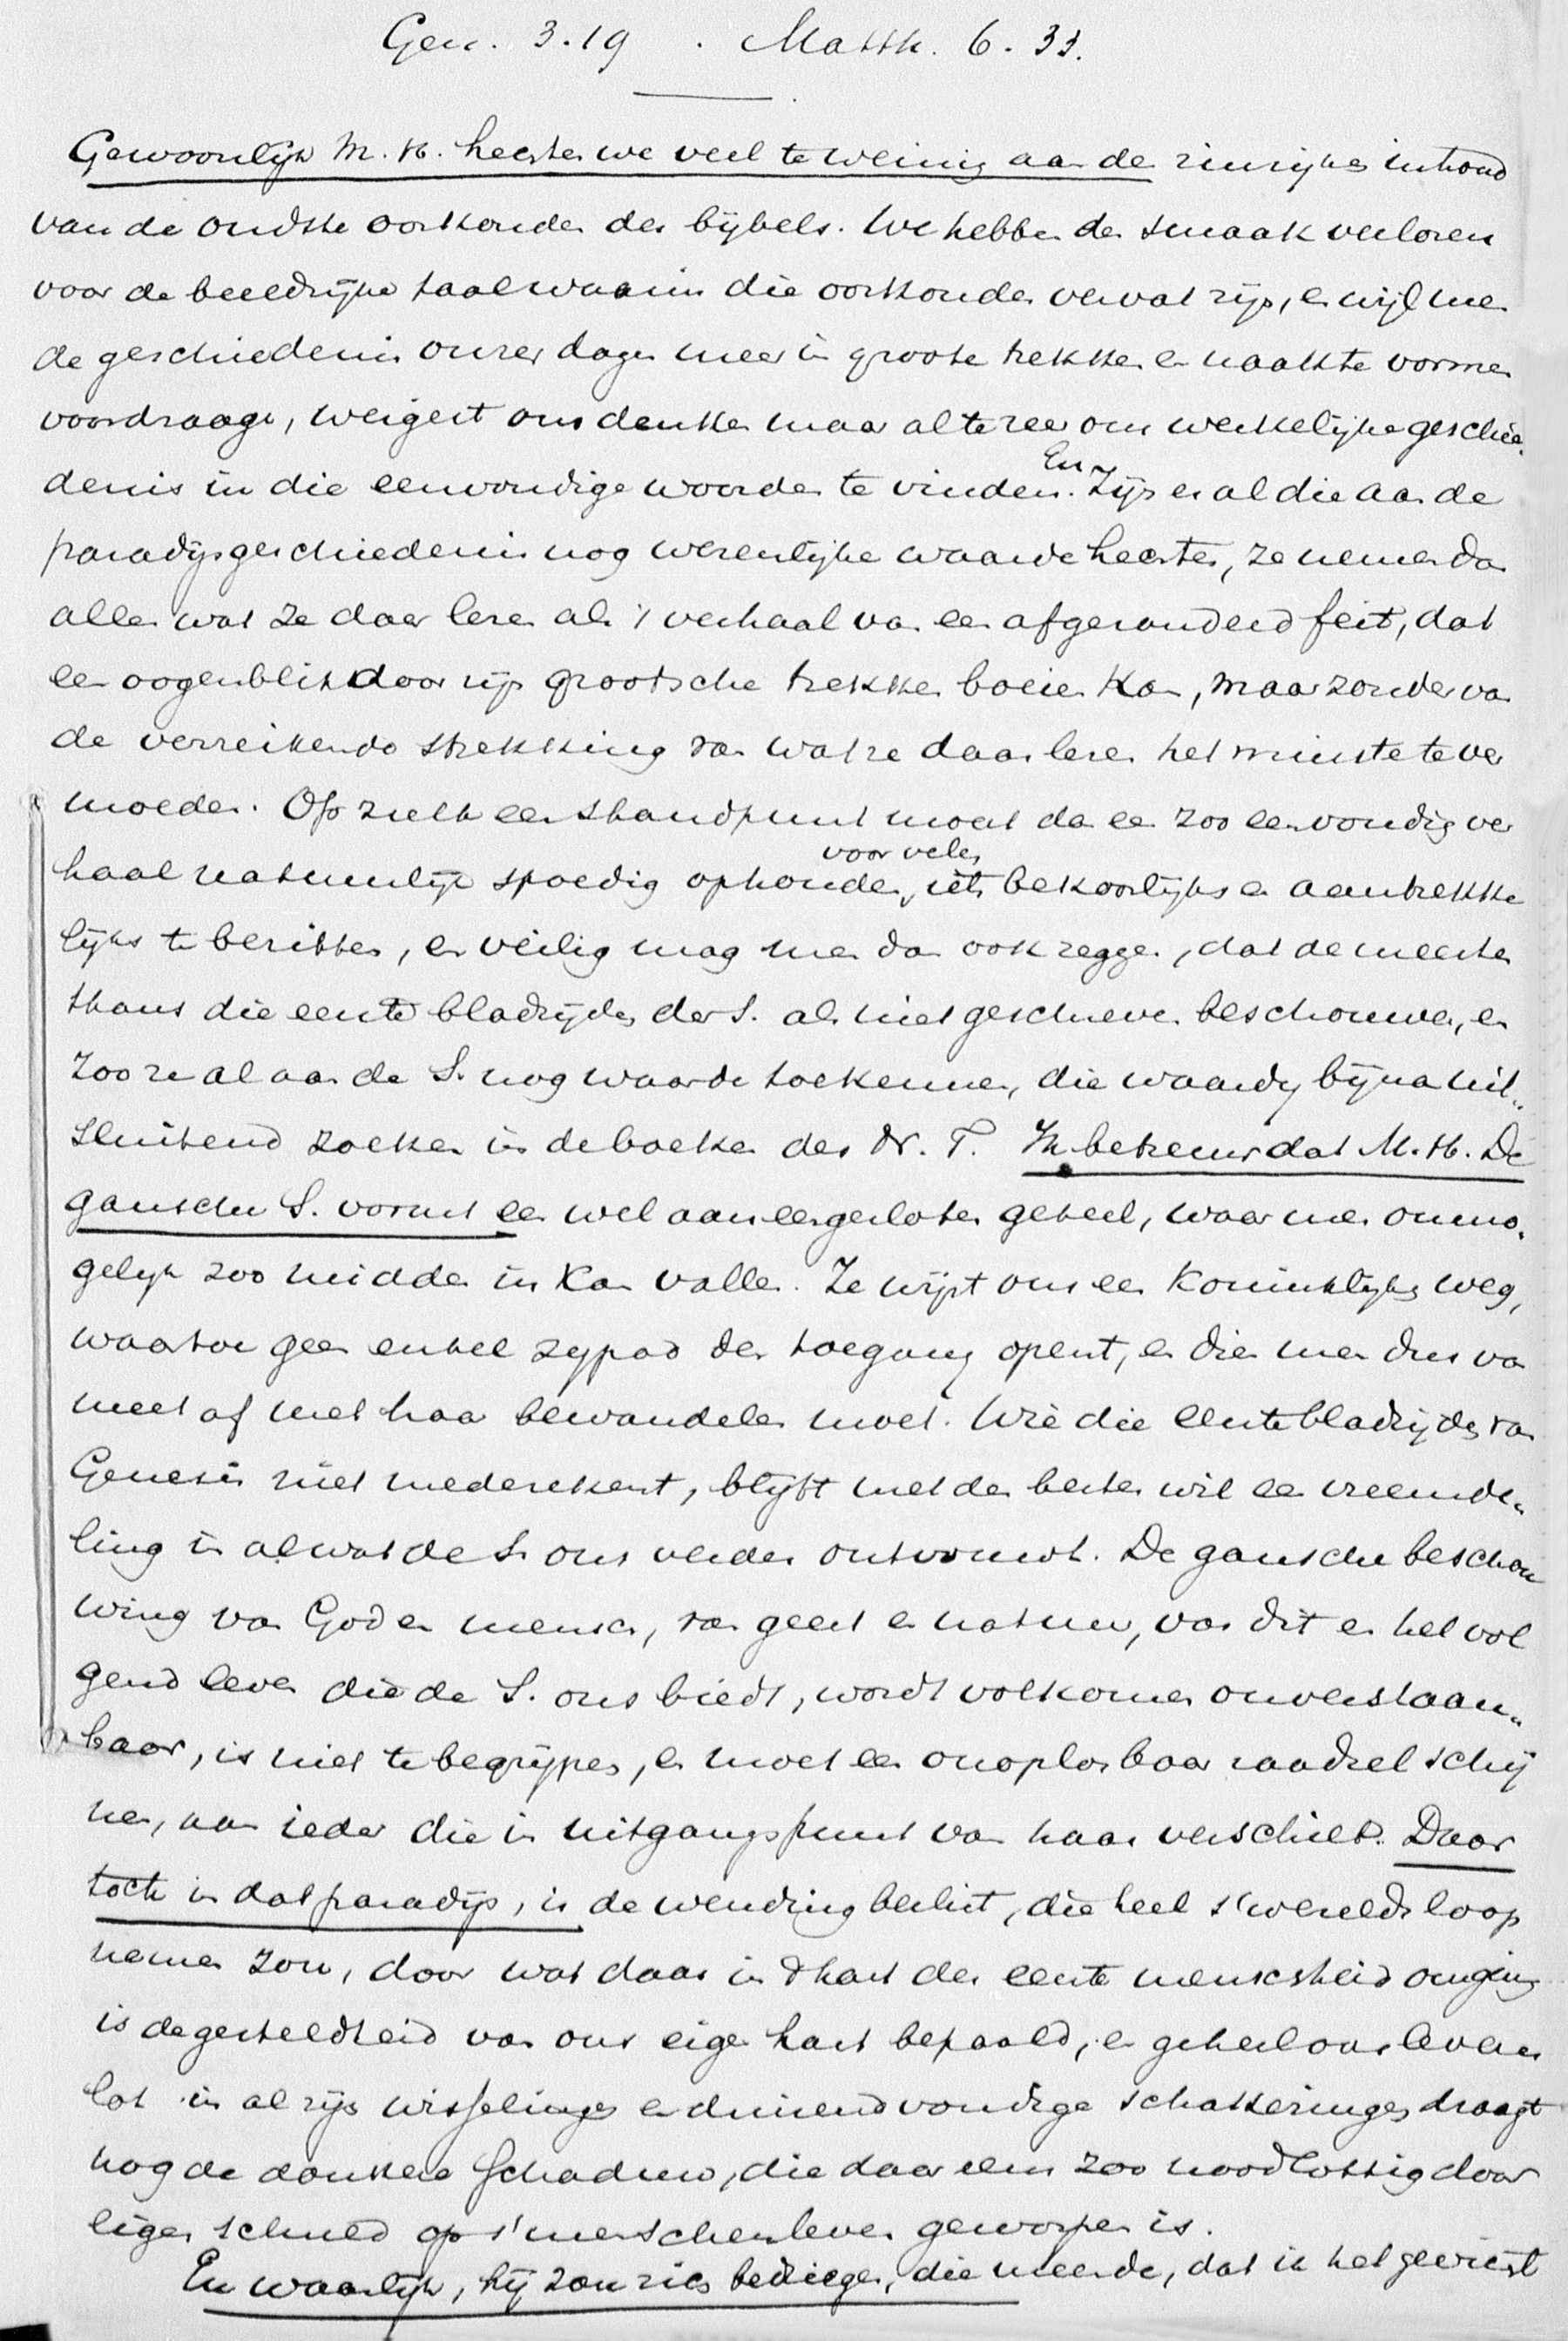 Gen. 3.19 . Matth. 6.33.
Gewoonlijk M. H. hechten we veel te weinig aan de zinrijken inhoud
van de oudste oorkonden des bijbels. We hebben den smaak verloren
voor de beeldrijke taal waarin die oorkonden vervat zijn, en wijl men
de geschiedenis onzer dagen meer in groote trekken en naakte vormen
voordraagt, weigert ons denken maar al te zeer om werkelijke geschie-
denis in die eenvoudige woorden te vinden. En Zijn er al die aan de
paradijsgeschiedenis nog wezenlijke waarde hechten, ze nemen dan
alles wat ze daar lezen als 't verhaal van een afgerond feit, dat
een oogenblik door zijn grootsche trekken boeien kan, maar zonder van
de verreikende strekking van wat ze daar lezen het minste te ver
moeden. Op zulk een standpunt moet dan een zoo eenvoudig ver
haal natuurlijk spoedig ophouden, voor velen iets bekoorlijks en aantrekke
lijks te bezitten, en veilig mag men dan ook zeggen, dat de meesten
thans die eerste bladzijden der S. als niet geschreven beschouwen, en
zoo ze al aan de S. nog waarde toekennen, die waarde bijna uit-
sluitend zoeken in de boeken des N. T. Ik betreur dat M. H. De
gansche S. vormt een wel aaneengesloten geheel, waar men onmo-
gelijk zoo midden in kan vallen. Ze wijst ons een koninklijken weg,
waartoe geen enkel zijpad den toegang opent, en dien men dus van
meet af met haar bewandelen moet. Wie die eerste bladzijden van
Genesis niet mederekent, blijft met den besten wil een vreemde-
ling in al wat de S. ons verder ontvouwt. De gansche beschou
wing van God en mensch, van geest en natuur, van dit en het vol
gend leven die de S. ons biedt, wordt volkomen onverstaan-
baar, is niet te begrijpen, en moet een onoplosbaar raadsel schij
nen, aan ieder die in uitgangspunt van haar verschilt. Daar
toch in dat paradijs, is de wending beslist, die heel 's werelds loop
nemen zou, door wat daar in 't hart der eerste menschheid omging
is de gesteldheid van ons eigen hart bepaald, en geheel ons levens
lot in al zijn wisselingen en duizendvoudige schakeringen draagt
nog de donkere schaduw, die daar eens zoo noodlottig door
eigen schuld op 's menschen leven geworpen is.
En waarlijk, hij zou zich bedriegen, die meende, dat ik het gewicht